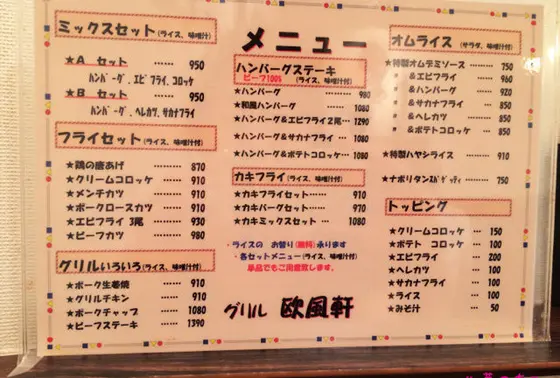 メニュー
ミックスセット(ライス、味噌汁付)
★A セット ……… 950
ハンバーグ、エビフライ、コロッケ
★B セット ……… 950
ハンバーグ、ヘレカツ、サカナフライ
フライセット(ライス、味噌汁付)
★鶏の唐あげ ……… 870
★クリームコロッケ ……… 910
★メンチカツ ……… 910
★ポークロースカツ ……… 910
★エビフライ 3尾 ……… 930
★ビーフカツ ……… 980
グリルいろいろ(ライス、味噌汁付)
★ポーク生姜焼 ……… 910
★グリルチキン ……… 910
★ポークチャップ ……… 1080
★ビーフステーキ ……… 1390
ハンバーグステーキ
ビーフ100% (ライス、味噌汁付)
★ハンバーグ ……… 980
★和風ハンバーグ ……… 1080
★ハンバーグ&エビフライ2尾… 1290
★ハンバーグ&サカナフライ … 1080
★ハンバーグ&ポテトコロッケ… 1080
カキフライ(ライス、味噌汁付)
★カキフライセット… 910
★カキバーグセット… 970
★カキミックスセット … 1080
・ライスの お替り(無料)承ります
・各セットメニュー(ライス、味噌汁付)
単品でもご用意致します。
グリル 欧風軒
オムライス (サラダ、味噌汁付)
★特製オムデミソース…… 750
〃 &エビフライ …… 960
〃 &ハンバーグ …… 920
〃 &サカナフライ …… 850
〃 &ヘレカツ …… 850
〃 &ポテトコロッケ …… 850
★特製ハヤシライス …… 910
★ナポリタンスパゲッティ …… 750
トッピング
★クリームコロッケ … 150
★ポテト コロッケ … 100
★エビフライ … 200
★ヘレカツ … 100
★サカナフライ … 100
★ライス … 100
★みそ汁 … 50